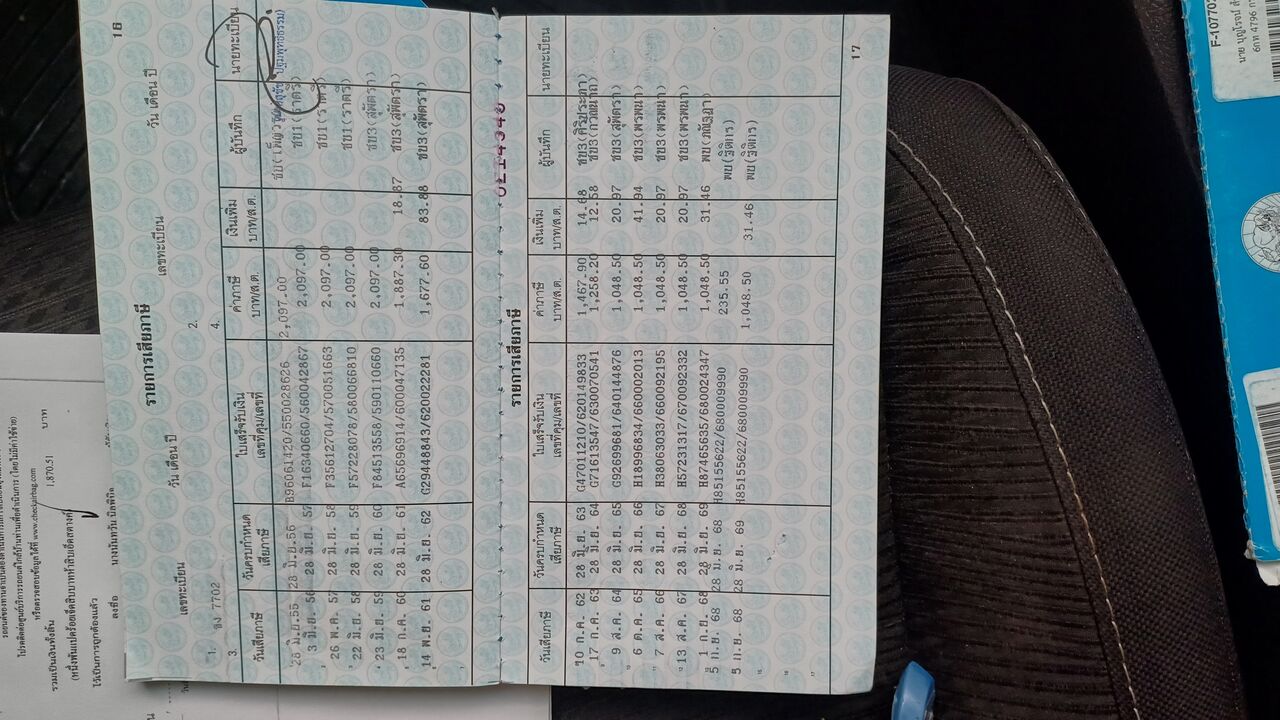 16
รายการเสียภาษี
วัน เดือน ปี
เลขทะเบียน
วัน เดือน ปี
เลขทะเบียน
1. ชง 7702
2.
3.
4.
วันเสียภาษี วันครบกำหนดเสียภาษี ใบเสร็จรับเงิน เล่มที่คุม/เลขที่ ค่าภาษี บาท/ส.ต. เงินเพิ่ม บาท/ส.ต. ผู้บันทึก นายทะเบียน
28 มิ.ย.55 28 มิ.ย.56 B96061420/550028626 2,097.00
3 มิ.ย. 56 28 มิ.ย. 57 F16340660/560042867 2,097.00 ชบ1(ราตรี)
26 พ.ค. 57 28 มิ.ย. 58 F35612704/570051663 2,097.00 ชบ1(ราตรี)
22 มิ.ย. 58 28 มิ.ย. 59 F57228078/580066810 2,097.00 ชบ1(ราตรี)
23 มิ.ย. 59 28 มิ.ย. 60 F84513558/590110660 2,097.00 ชบ3(สุพัตรา)
18 ก.ค. 60 28 มิ.ย. 61 A65696914/600047135 1,887.30 18.87 ชบ3(สุพัตรา)
14 พ.ย. 61 28 มิ.ย. 62 G29448843/620022281 1,677.60 83.88 ชบ3(สุพัตรา)
รายการเสียภาษี
วันเสียภาษี วันครบกำหนดเสียภาษี ใบเสร็จรับเงิน เล่มที่คุม/เลขที่ ค่าภาษี บาท/ส.ต. เงินเพิ่ม บาท/ส.ต. ผู้บันทึก นายทะเบียน
10 ก.ค. 62 28 มิ.ย. 63 G47011210/620149833 1,467.90 14.68
17 ก.ค. 63 28 มิ.ย. 64 G71613547/630070541 1,258.20 12.58
9 ส.ค. 64 28 มิ.ย. 65 G92699681/640144876 1,048.50 20.97 ชบ3(สุพัตรา)
6 ต.ค. 65 28 มิ.ย. 66 H18996834/660002013 1,048.50 41.94 ชบ3(พรพนา)
7 ส.ค. 66 28 มิ.ย. 67 H38063033/660092195 1,048.50 20.97 ชบ3(พรพนา)
13 ส.ค. 67 28 มิ.ย. 68 H57231317/670092332 1,048.50 20.97 ชบ3(พรพนา)
1 ก.ย. 68 28 มิ.ย. 69 H87465635/680024347 1,048.50 31.46
5 ก.ย. 68 28 มิ.ย. 68 H85155622/680009990 235.55 พบ(ฐิติพร)
5 ก.ย. 68 28 มิ.ย. 69 H85155622/680009990 1,048.50 31.46 พบ(ฐิติพร)
17
รวมเป็นเงินทั้งสิ้น 1,870.51 บาท
(หนึ่งพันแปดร้อยเจ็ดสิบบาทห้าสิบเอ็ดสตางค์)
ไว้เป็นการถูกต้องแล้ว
ลงชื่อ
หรือตรวจสอบข้อมูลได้ที่ www.checkairbag.com